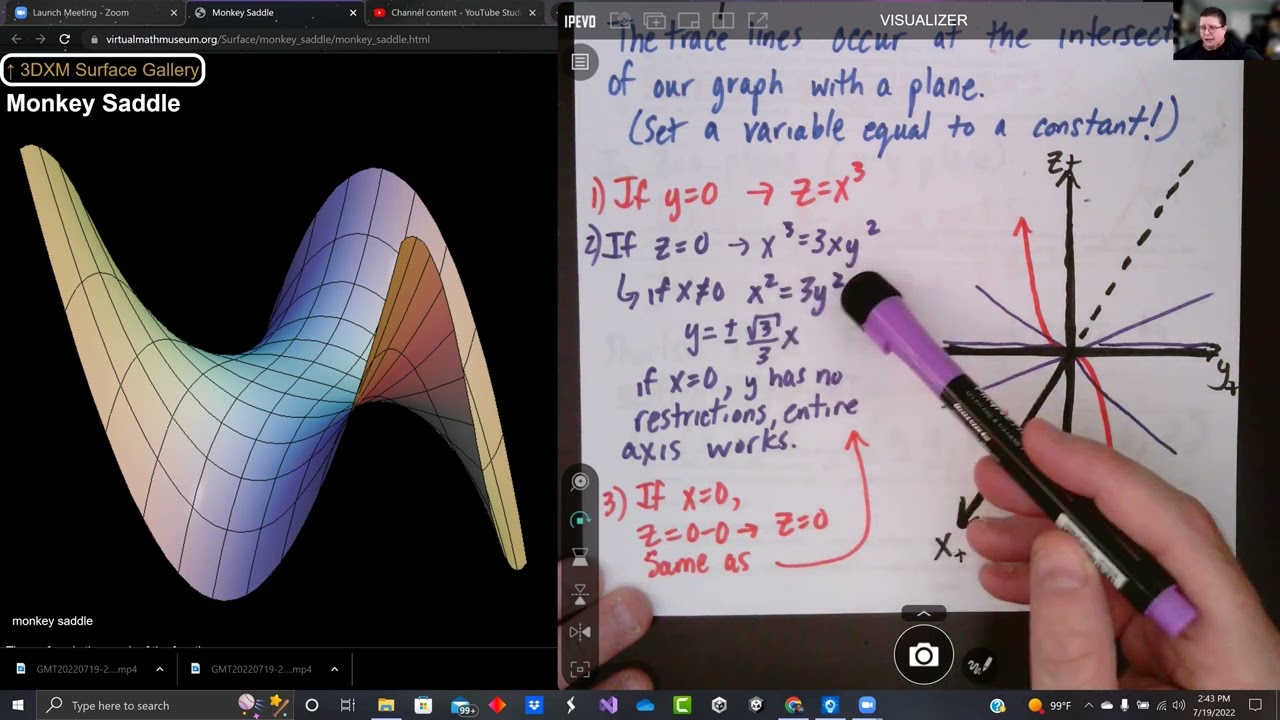 Launch Meeting - Zoom
Monkey Saddle
Channel content - YouTube Stud
virtualmathmuseum.org/Surface/monkey_saddle/monkey_saddle.html
↑ 3DXM Surface Gallery
Monkey Saddle
monkey saddle
GMT20220719-2....mp4
GMT20220719-2....mp4
IPEVO
VISUALIZER
The trace lines occur at the intersect
of our graph with a plane.
(Set a variable equal to a constant!)
1) If y=0 → z=x³
2) If z=0 → x³=3xy²
↳ if x≠0 x²=3y²
y=± √3/3 x
if x=0, y has no
restrictions, entire
axis works.
3) If x=0,
z=0-0 → z=0
Same as
z+
y+
x+
Type here to search
99+
99°F
2:43 PM
7/19/2022